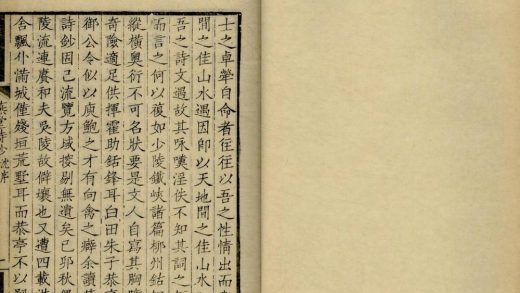 士之卓犖自命者往往以吾之性情出而
閒之佳山水遇因卽以天地閒之佳山水
吾之詩文遇故其咏嘆淫佚不知其詞之
而言之何以複如少陵鐵峽諸篇柳州鈷
縱橫奧衍不可名狀要是文人自寫其胸
奇險適足供揮霍助銛鋒耳白田朱子恭
御公令似以庾鮑之才有向禽之癖余讀
詩鈔固已流覽方域搜剔無遺矣已卯秋
陵流連賡和夫吳陵故僻壤也又遭四載
舍飄仆滿城僅殘垣荒墅耳而恭亭不以
詩鈔 沈序